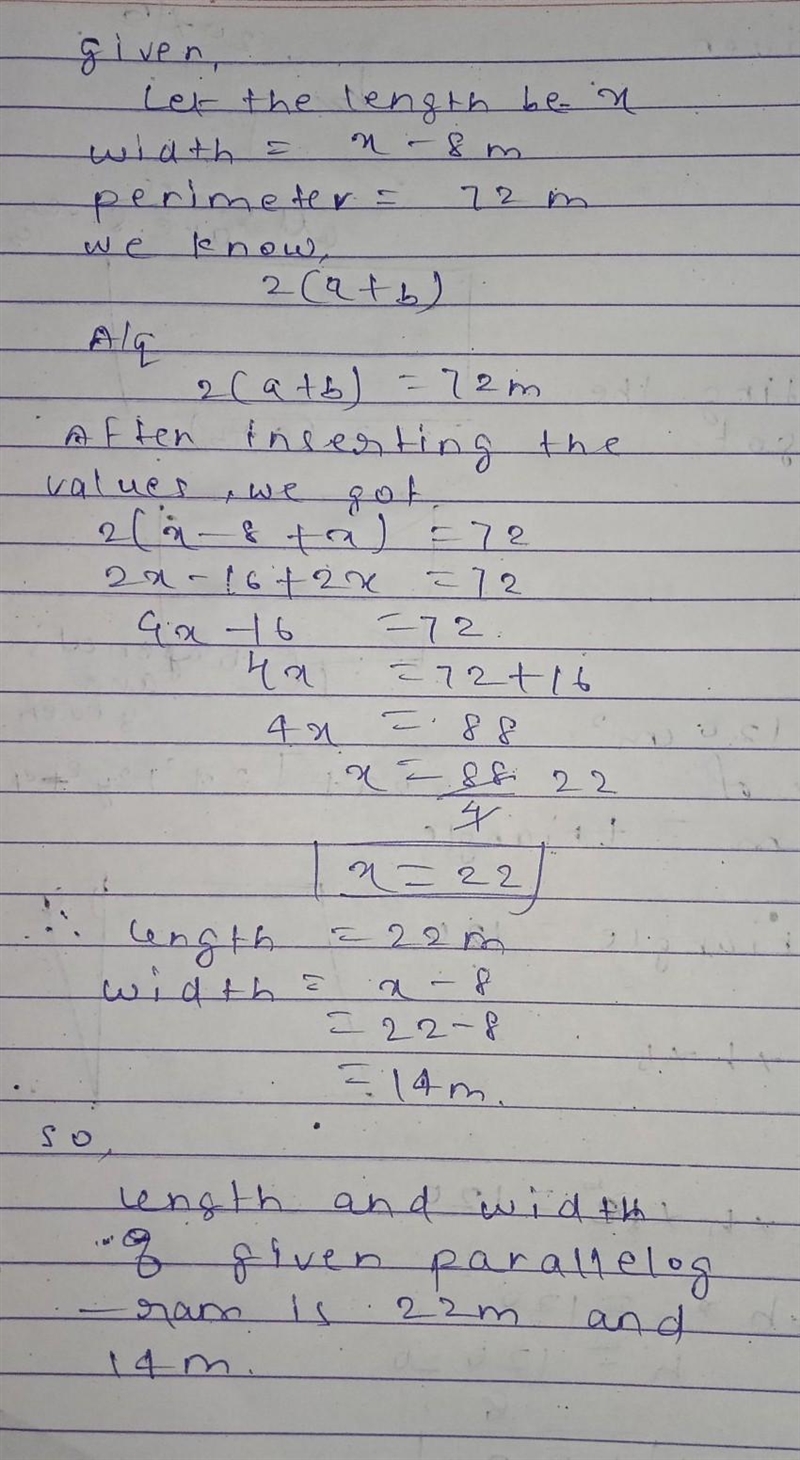 given,
Let the length be x
width = x - 8 m
perimeter = 72 m
we know,
2(a+b)
A/q
2(a+b) = 72m
After inserting the
values, we got
2(x - 8 + x) = 72
2x - 16 + 2x = 72
4x - 16 = 72
4x = 72 + 16
4x = 88
x = 88/4 22
x = 22
∴ length = 22 m
width = x - 8
= 22 - 8
= 14 m.
so,
length and width
of given parallelog
-ram is 22m and
14 m.